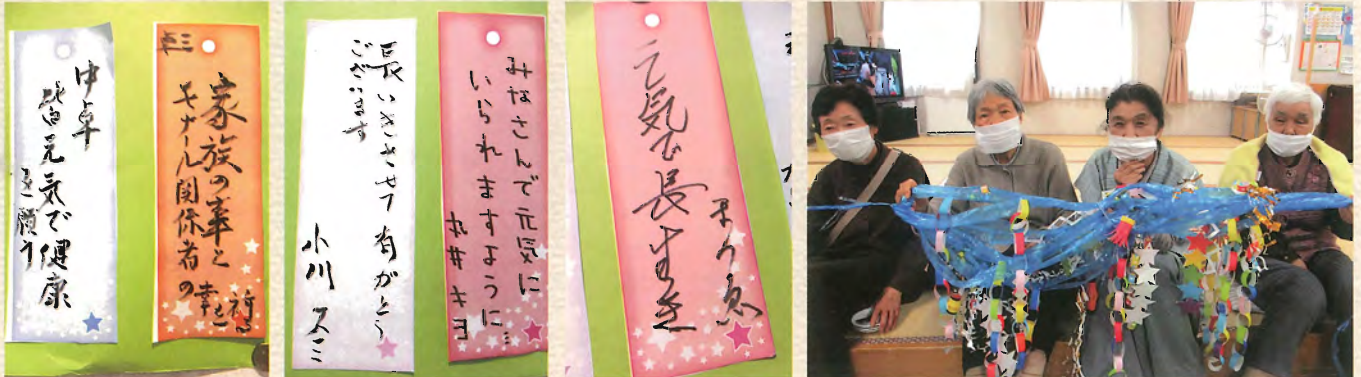 皆元気で健康
を願う
家族の幸と
モナール関係者の
幸を祈る
長いきさせて有がとう
ございます
小川 スミ
みなさんで元気に
いられますように…
丸井 キヨ
元気で長生き